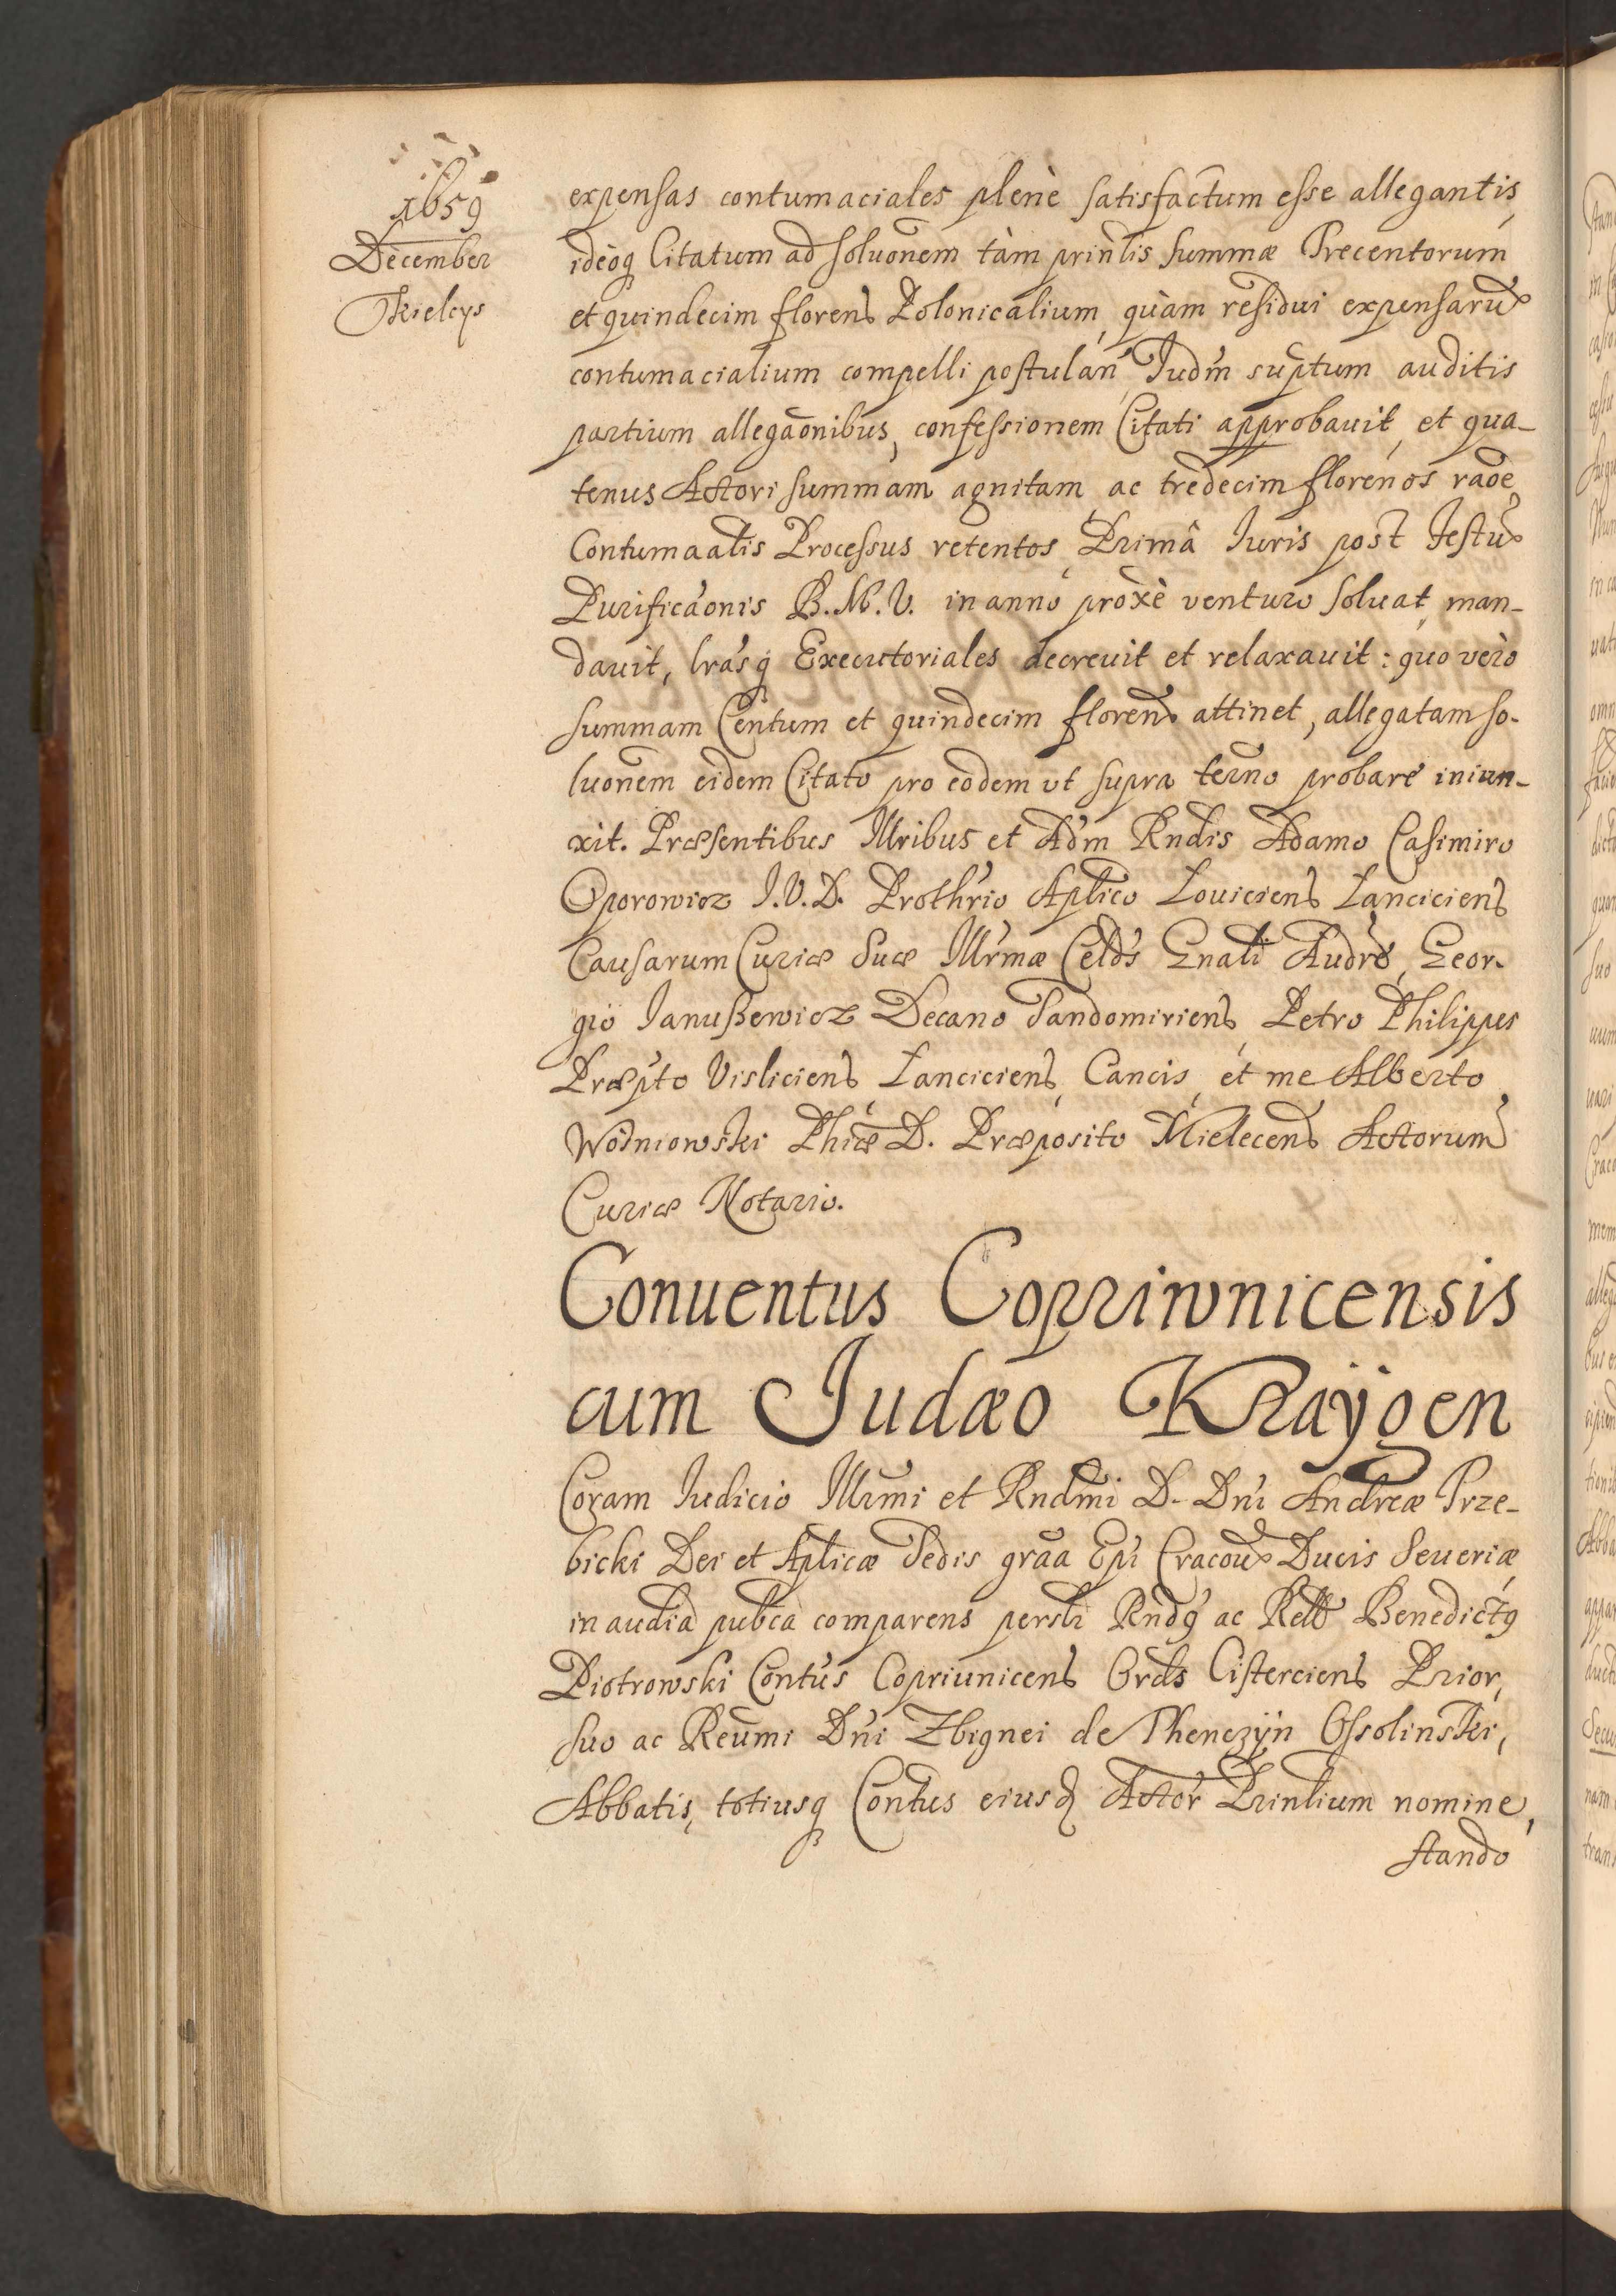 1659
December
Kielcys
expensas contumaciales plenè satisfactum esse allegantis,
ideoq Citatum ad soluōnem tàm prinlis summæ Trecentorum
et quindecim florenˢ Polonicalium, quàm residui expensarū
contumacialium compelli postulan̄, Judm̄ suptum auditis
partium allegaōnibus, confessionem Citati approbauit, et qua-
tenus Actori summam agnitam ac tredecim florenos raōe
Contumaalis Processus retentos, Primâ Iuris post Festū
Purificaōnis B.M.V. in anno proxè venturo soluat, man-
dauit, lrasq Executoriales decreuit et relaxauit: quo verò
summam Centum et quindecim florenˢ attinet, allegatam so-
luōnem eidem Citato pro eodem vt supra terno probare iniun-
xit. Præsentibus Illribus et Adm Rndis Adamo Casimiro
Oporowicz I.V.D. Prothrio Aplico Louiciensˢ Lanciciensˢ
Causarum Curiæ Suæ Illrmæ Celdˢ Gnali Audrē, Geor-
gio Janußewicz Decano Sandomiriensˢ, Petro Philippes
Præpto Visliciensˢ, Lanciciensˢ, Cancis, et me Alberto
Wodniowski Phiæ D. Præposito Mielecensˢ Actorum
Curiæ Notario.
Conuentus Copriwnicensis
cum Judæo Kraÿgen
Coram Iudicio Illrmi et Rndmi D. Dni Andreæ Trze-
bicki Dei et Aplicæ Sedis graa Epi Cracou Ducis Seueriæ,
in audia pubca comparens persli Rndꝰ ac Rell Benedictꝰ
Piotrowski Contūs Copriunicensˢ Ordˢ Cisterciensˢ Prior,
suo ac Reumi Dni Zbignei de Thenczÿn Ossolinski,
Abbatis, totiusq Contus eiusd Actor Prinlium nomine,
stando